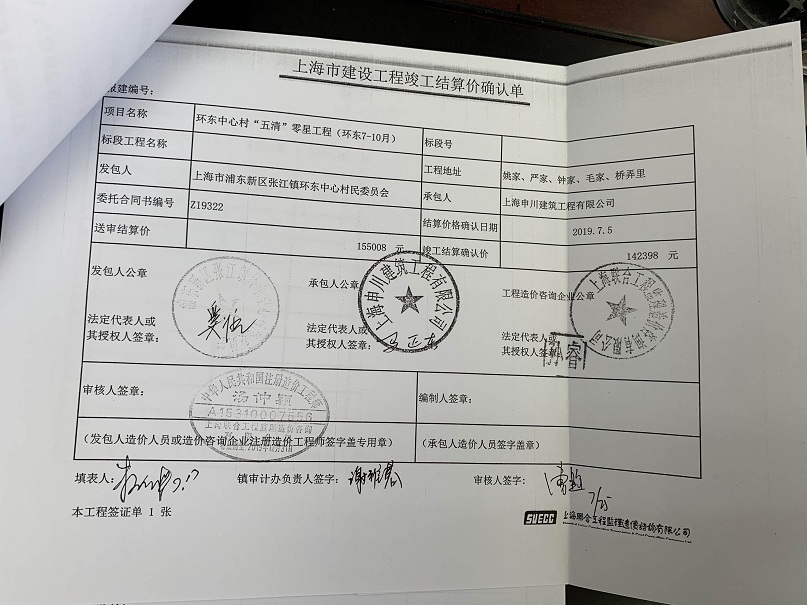 上海市建设工程竣工结算价确认单
报建编号：
项目名称 环东中心村“五清”零星工程（环东7-10月） 标段号
标段工程名称 工程地址 姚家、严家、钟家、毛家、桥弄里
发包人 上海市浦东新区张江镇环东中心村民委员会 承包人 上海申川建筑工程有限公司
委托合同书编号 Z19322 结算价格确认日期 2019.7.5
送审结算价 155008 元 竣工结算确认价 142398 元
发包人公章 承包人公章 工程造价咨询企业公章
上海申川建筑工程有限公司
上海联合工程监理造价咨询有限公司
法定代表人或
其授权人签章：
法定代表人或
其授权人签章：
法定代表人或
其授权人签章：
审核人签章： 编制人签章：
中华人民共和国注册造价工程师
汤仲颖
A15310007556
上海联合工程监理造价咨询
（发包人造价人员或造价咨询企业注册造价工程师签字盖专用章） （承包人造价人员签字盖章）
填表人： 镇审计办负责人签字： 审核人签字：
7/25
本工程签证单 1 张
SUECC 上海联合工程监理造价咨询有限公司